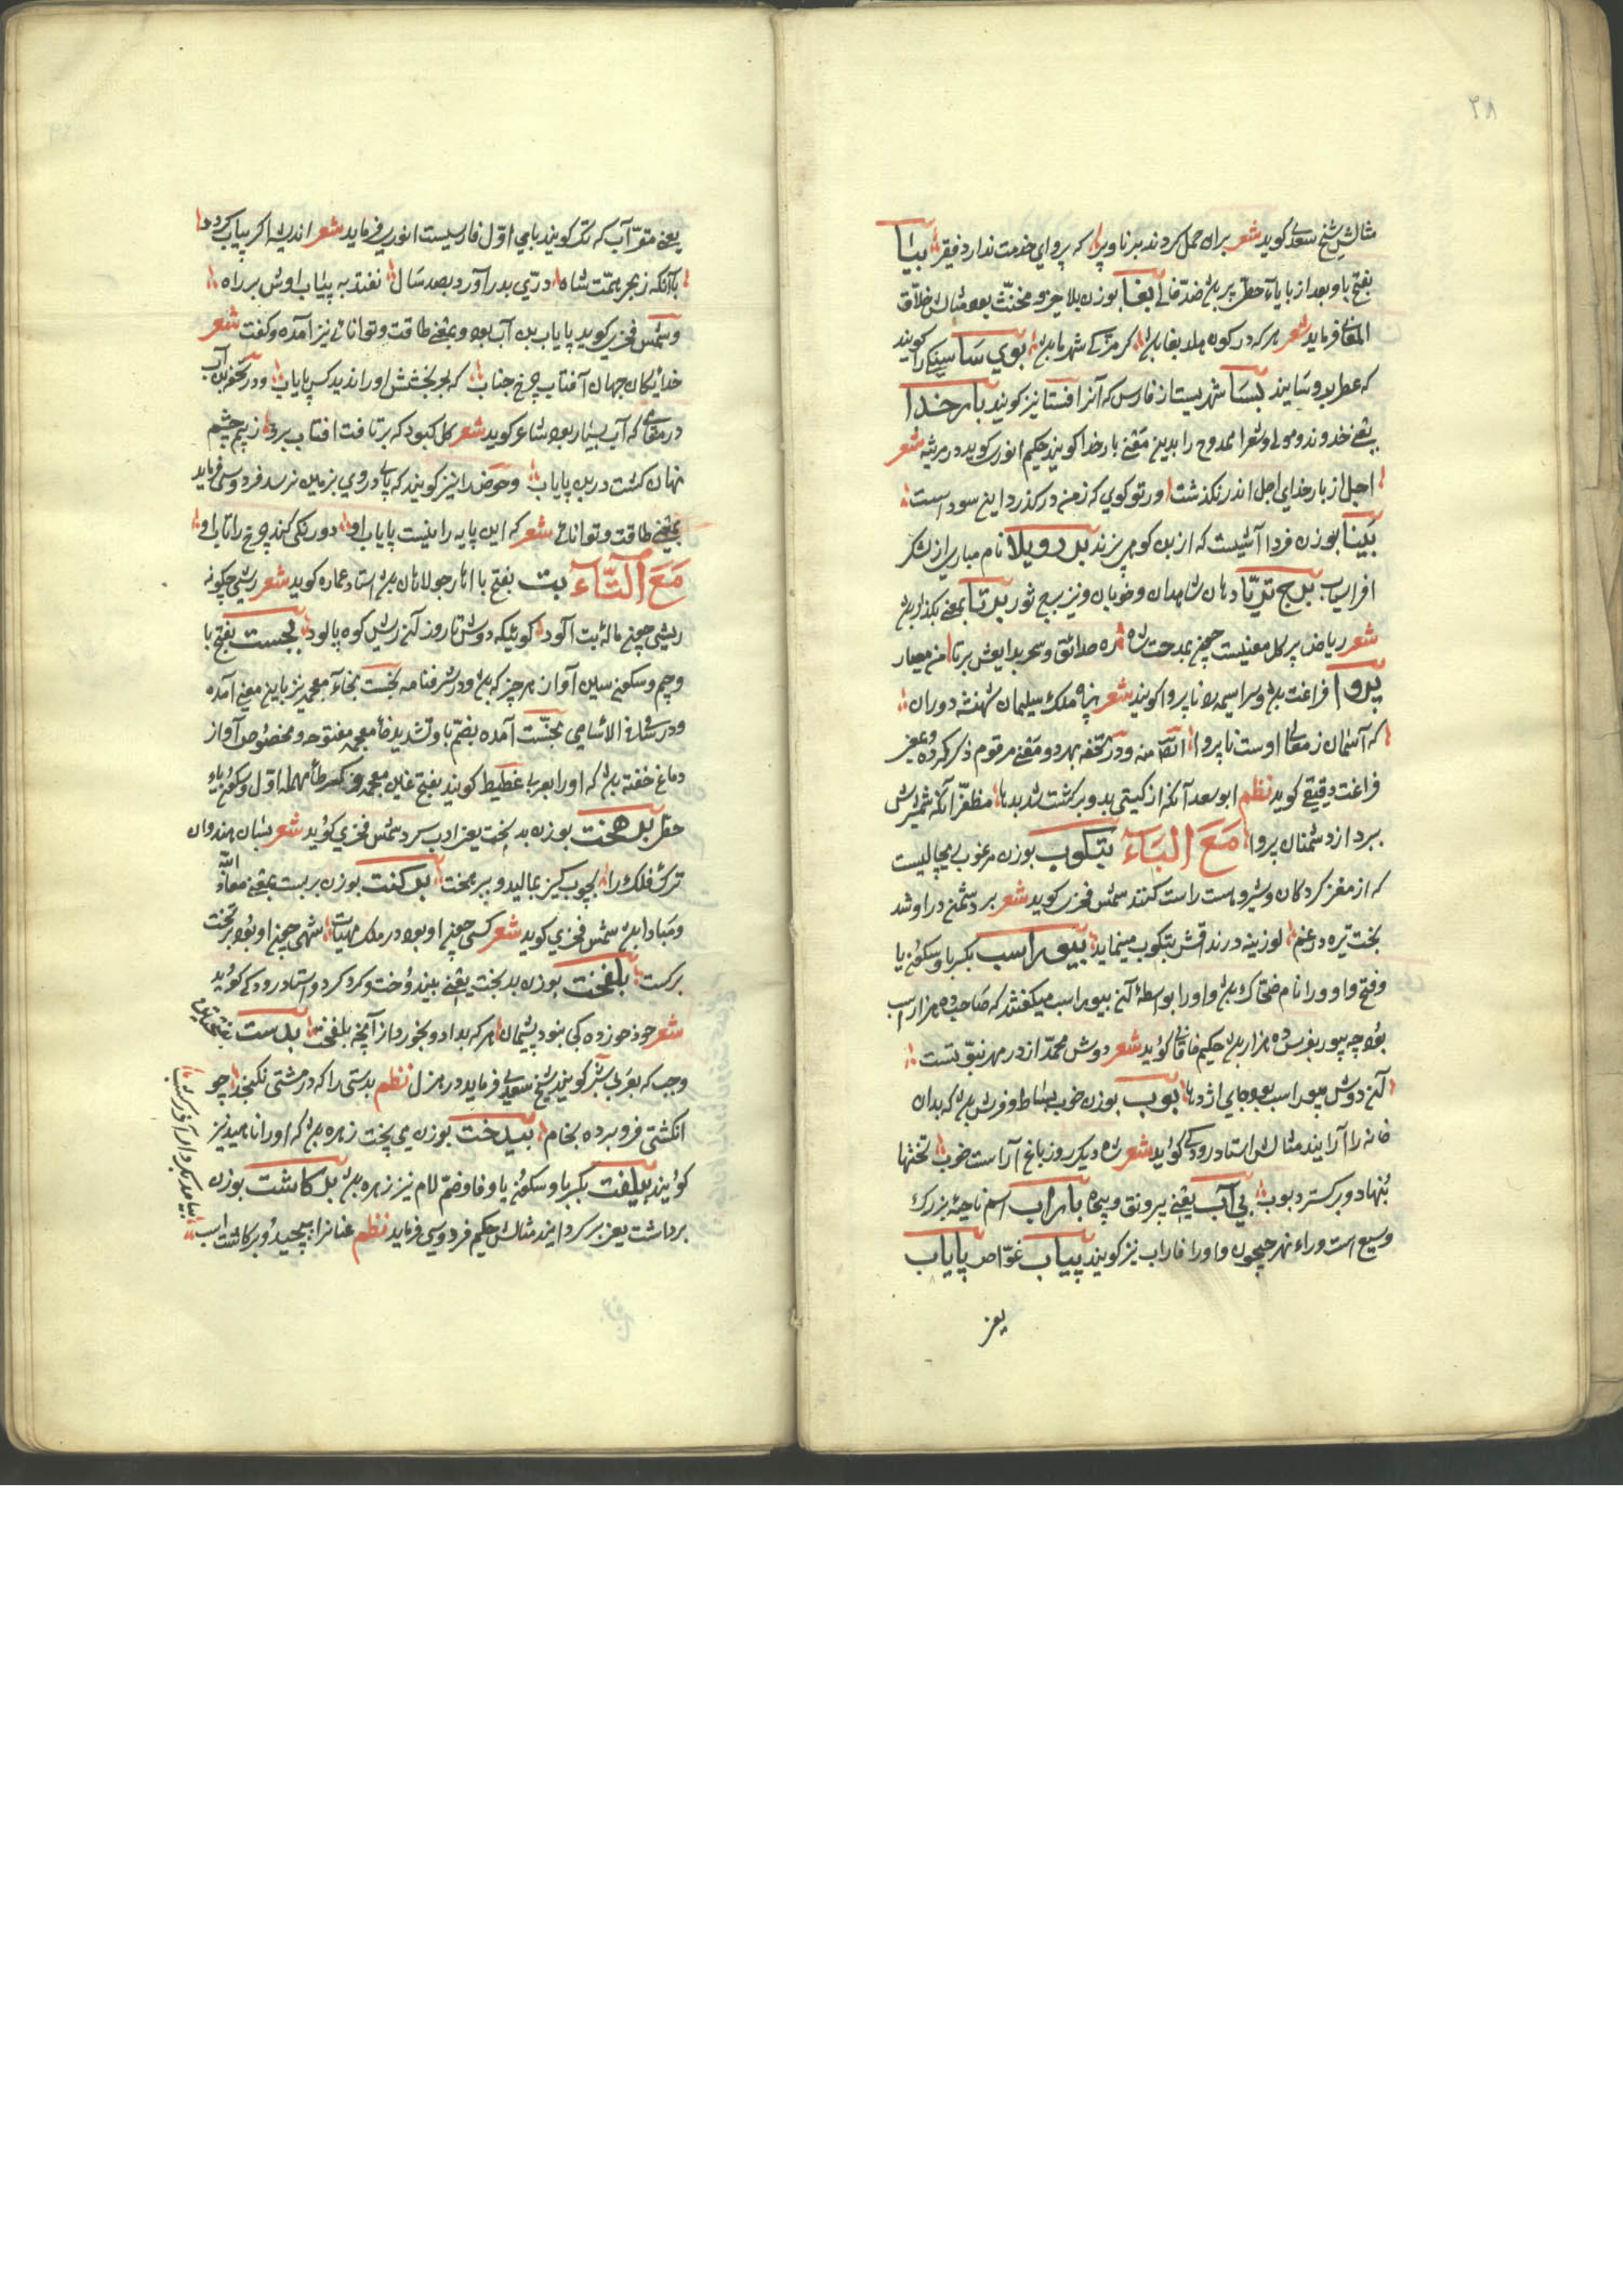 ۳۸
مثالش شیخ سعدی کوید شعر بران حمل کردند برنا و پیر که پروای خدمت ندارد فقیر بیٰا
بفتح با و بعد از با یاء حطی پر باشد ضد خالی بغا بوزن بلا حیز و مخنث بود مثالش خلاق
المعانی فرماید شعر هر که در کون هلد بغا باشد کر مزکی شهر ما باشد بوی سا سنکی را کویند
که عطر برو سایند بسا شهریست از فارس که آنرا فسا نیز کویند بارخدا
یعنی خداوند و مولی و شعرا ممدوح را بدین معنی بار خدا کویند حکیم انوری کوید در مرثیه شعر
اجل از بار خدای اجل اندر نکذشت ور تو کوی که ز من درکذرد این سوداست
بوزن فردا آشیست که از بن کوهی پزند بردویلا نام مبارزی از لشکر
افراسیاب برج ثریا دهان شاهدان و خوبان و نیز برج ثور برتا بمعنی بکذار باشد
شعر ریاض پر کل معنیست چون بمدحت شاه حدائق و سحر بدایعش برتا من معیار
پروا فراغت باشد و سراسیمه را ناپروا کویند شعر پناه ملک سلیمان شهنشه دوران
که آسمان ز معالی اوست ناپروا انتهی منه و در تحفه بهر دو معنی مرقوم ذکر کرده و عنی
فراغت دقیقی کوید نظم ابو سعد آنکه از کیتی بدو برکشت شد بدها مظفر آنکه شمشیرش
ببرد از دشمنان پروا مَعَ البَاء بتکوب بوزن مرغوب ریچالیست
که از مغز کردکان و شیر و ماست راست کنند شمس فخری کوید شعر بر دشمن دراو شد
بخت تیره دو غم لوزینه در مذاقش بتکوب مینماید بیوراسب بکسر با و سکون یا
و فتح واو و را نام ضحاک باشد و او را بواسطه آن بیوراسب میکفتند که صاحب ده هزار اسب
بود چه بیور بفرس ده هزار باشد حکیم خاقانی کوید شعر دوش محمد از در مهر نبوتست
آن دوش بیوراسب بود جای اژدها بوب بوزن خوب بساط و فرش باشد که بدان
خانه را آرایند مثالش استاد رودکی کوید شعر شاه دیکر روز باغ آراست خوب تختها
بنهاد و برکسترد بوب بی آب یعنی بیرونق و باراب اسم ناحیه بزرک
وسیع است وراء نهر جیحون و او را فاراب نیز کویند پیاب غواص پایاب
یعنی
یعنی مقر آب که تک کویند بای اول فارسیست انوری فرماید شعر اندیشه اکر پیاب کردد
با آنکه ز بحر همت شاه دری بدر آورد بصد سال نفتد به پیاب اوش بر راه
و شمس فخری کوید پایاب بن آب بود و بمعنی طاقت و توانائی نیز آمده و کفت شعر
خدایکان جهان آفتاب چرخ جناب که بحر بخشش او را ندید کس پایاب و در تحفه بن آب
در مقامی که آب بسیار بود شاعر کوید شعر کل کبود که برتافت افتاب برو ز بیم چشم
نهان کشت در بن پایاب و حوض را نیز کویند که پای در وی بزمین نرسد فردوسی فرماید
بمعنی طاقت و توانائی شعر که این پایه را نیست پایاب او دورنکی کند چرخ را تاب او
مَعَ التّاء بت بفتح با اهار جولاهان باشد استاد عماره کوید شعر ریشی چکونه
ریشی چون ماله بت آلود کوئیکه دوش تا روز آن ریش کوه پالود بجست بفتح با
و جیم و سکون سین آواز هر چیز که باشد و در شرفنامه بخست بخاء معجمه نیز باین معنی آمده
و در سامی الاسامی بخست آمده بضم با و تشدید خا معجمه مفتوحه و مخصوص آواز
دماغ خفته باشد که او را بعربی غطیط کویند بفتح غین معجمه و کسر طا مهمله اول و سکون یاء
حطی برهخت بوزن بدبخت یعنی ادب کرد شمس فخری کوید شعر بسان هندوان
ترک فلک را بچوب کین بمالید و برهخت برکنت بوزن بربست بمعنی معاذ الله
و مبادا باشد شمس فخری کوید شعر کسی چون او بود در ملک هیهات شهی چون او بود بر تخت
برکست بلفخت بوزن بدبخت یعنی بیندوخت و کرد کرد استاد رودکی کوید
شعر خود خور و ده کی نبود پشیمان هر که بداد و بخورد از آنچه بلفخت بدست
وجب که بعربی شبر کویند شیخ سعدی فرماید در هزل نظم بدستی را که در مشتی نکنجد چو
انکشتی فرو برده بخام بیدخت بوزن می پخت زهره باشد که او را ناهید نیز
کویند بیلفت بکسر با و سکون یا و فا و ضم لام نیز زهره باشد برکاشت بوزن
برداشت یعنی برکردانید مثالش حکیم فردوسی فرماید نظم عنانرا بپیچید و برکاشت اسب
بیامد بکردار آذر کشسب